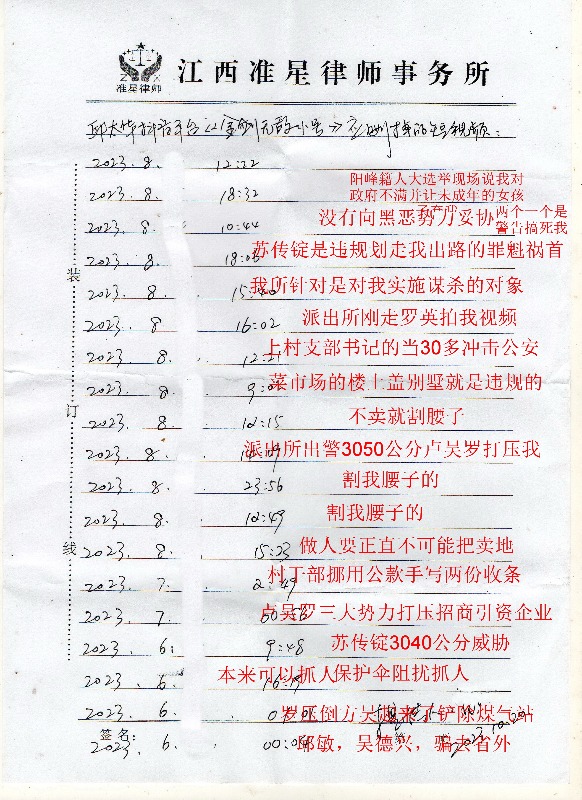 准星律师
江西准星律师事务所
2023. 8. 12:22
2023. 8. 18:32 阳峰籍人大选举现场说我对
政府不满并让未成年的女孩
2023. 8. 10:44 没有向黑恶势力妥协 两个一个是
警告搞死我
2023. 8. 苏传锭是违规划走我出路的罪魁祸首
2023. 8. 我所针对是对我实施谋杀的对象
2023. 8 16:02 派出所刚走罗英拍我视频
2023. 8. 12:21 上村支部书记的当30多冲击公安
2023. 8. 菜市场的楼上盖别墅就是违规的
2023. 8. 12:15 不卖就割腰子
2023. 8. 派出所出警3050公分卢吴罗打压我
2023. 8. 23:56 割我腰子的
2023. 8. 12:49 割我腰子的
2023. 8. 15:23 做人要正直不可能把卖地
2023. 7. 2:49 村干部挪用公款手写两份收条
2023. 7. 卢吴罗三大势力打压招商引资企业
2023. 6. 9:48 苏传锭3040公分威胁
2023. 6. 本来可以抓人保护伞阻扰抓人
2023. 6. 罗压倒方吴越来了铲除煤气站
签名:
2023. 6. 邱敏，吴德兴，骗去省外
装
订
线